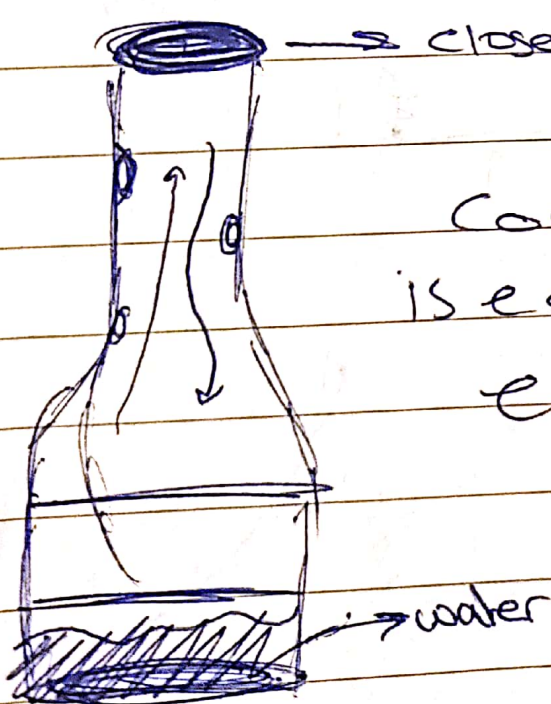 close
is e
e
water